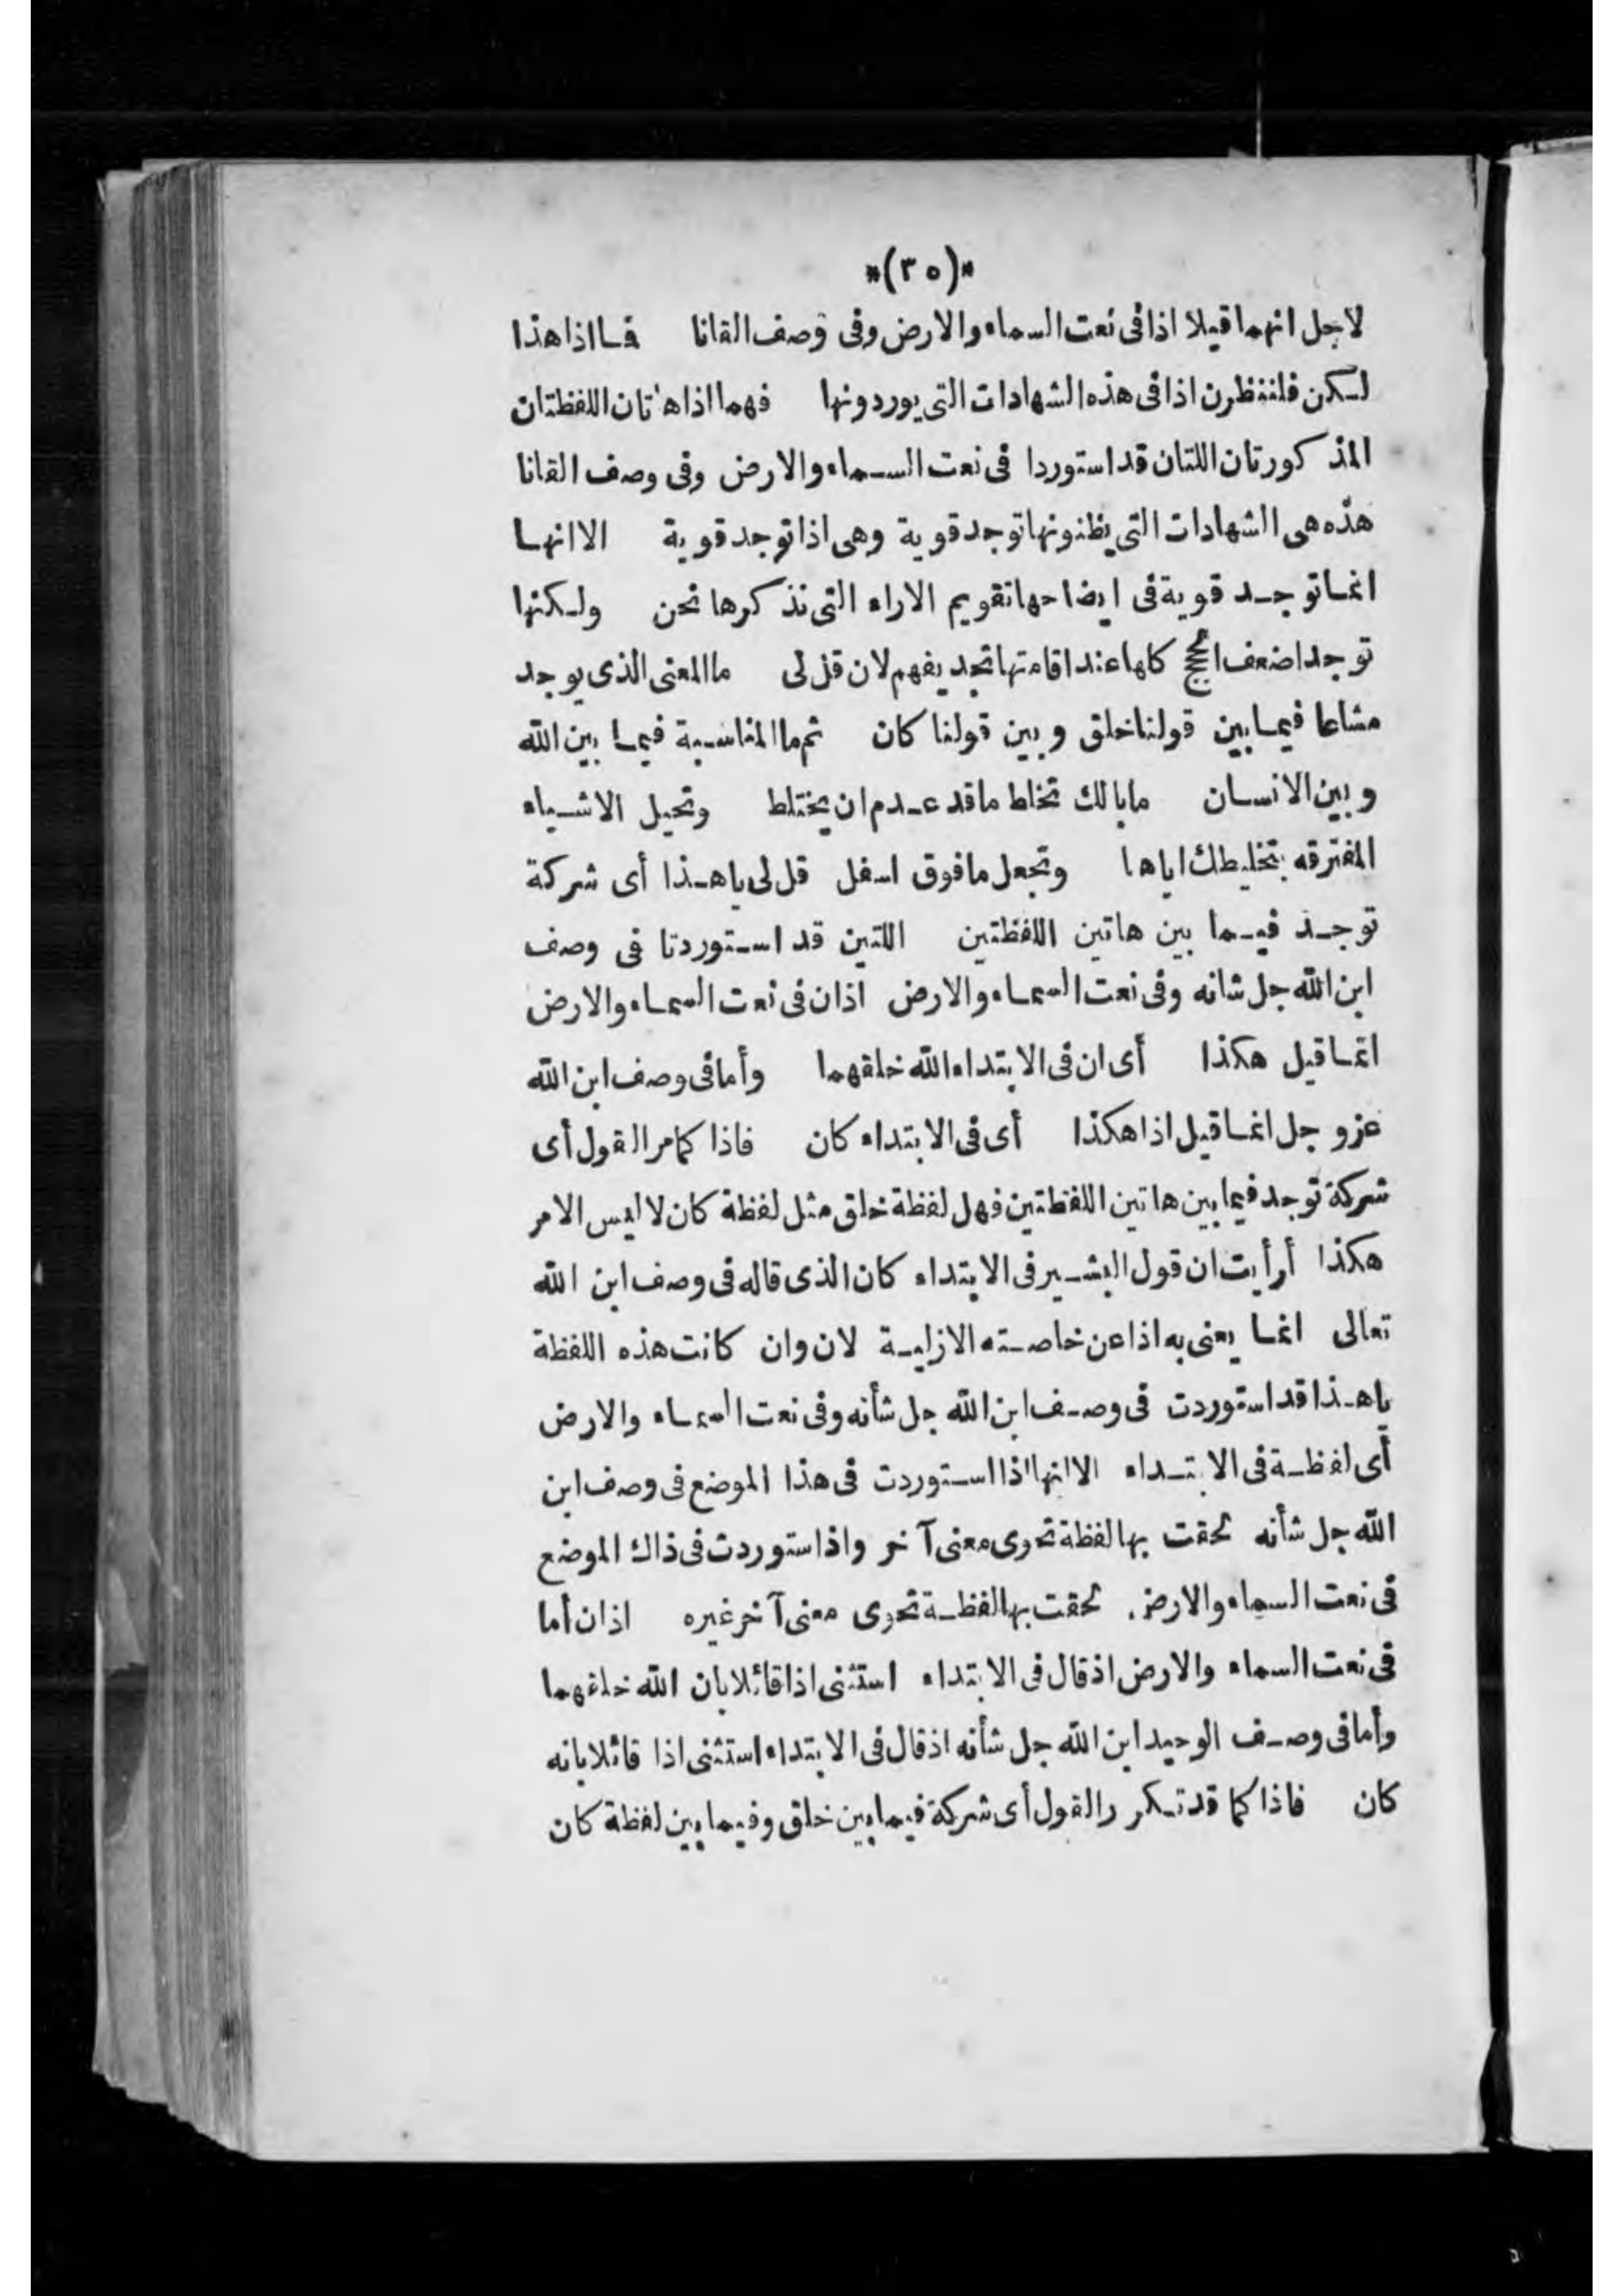 *(٣٥)*
لاجل انهما قيلا اذا فى نعت السماء والارض وفى وصف القانا فما اذا هذا
لكن فلننظرن اذا فى هذه الشهادات التى يوردونها فهما اذا هاتان اللفظتان
المذكورتان اللتان قد استوردا فى نعت السماء والارض وفى وصف القانا
هذه هى الشهادات التى يظنونها توجد قوية وهى اذا توجد قوية الا انها
انما توجد قوية فى ايضاحها تقويم الاراء التى نذكرها نحن ولكنها
توجد اضعف الحجج كلها عند اقامتها تجديفهم لان قل لى ما المعنى الذى يوجد
مشاعا فيما بين قولنا خلق وبين قولنا كان ثم ما المناسبة فيما بين الله
وبين الانسان ما بالك تخلط ما قد عدم ان يختلط وتحيل الاشياء
المفترقه بتخليطك اياها وتجعل ما فوق اسفل قل لى يا هذا أى شركة
توجد فيما بين هاتين اللفظتين اللتين قد استوردتا فى وصف
ابن الله جل شانه وفى نعت السماء والارض اذ ان فى نعت السماء والارض
انما قيل هكذا أى ان فى الابتداء الله خلقهما وأما فى وصف ابن الله
عز وجل انما قيل اذا هكذا أى فى الابتداء كان فاذا كما مر القول أى
شركة توجد فيما بين هاتين اللفظتين فهل لفظة خلق مثل لفظة كان لا ليس الامر
هكذا أرأيت ان قول البشير فى الابتداء كان الذى قاله فى وصف ابن الله
تعالى انما يعنى به اذا عن خاصته الازلية لان وان كانت هذه اللفظة
يا هذا قد استوردت فى وصف ابن الله جل شأنه وفى نعت السماء والارض
أى لفظة فى الابتداء الا انها اذا استوردت فى هذا الموضع فى وصف ابن
الله جل شأنه لحقت بها لفظة تحوى معنى آخر واذا ستوردت فى ذاك الموضع
فى نعت السماء والارض. لحقت بها لفظة تحوى معنى آخر غيره اذ ان أما
فى نعت السماء والارض اذ قال فى الابتداء استثنى اذا قائلا بان الله خلقهما
وأما فى وصف الوحيد ابن الله جل شأنه اذ قال فى الابتداء استثنى اذا قائلا بانه
كان فاذا كما قد تكرر القول أى شركة فيما بين خلق وفيما بين لفظة كان